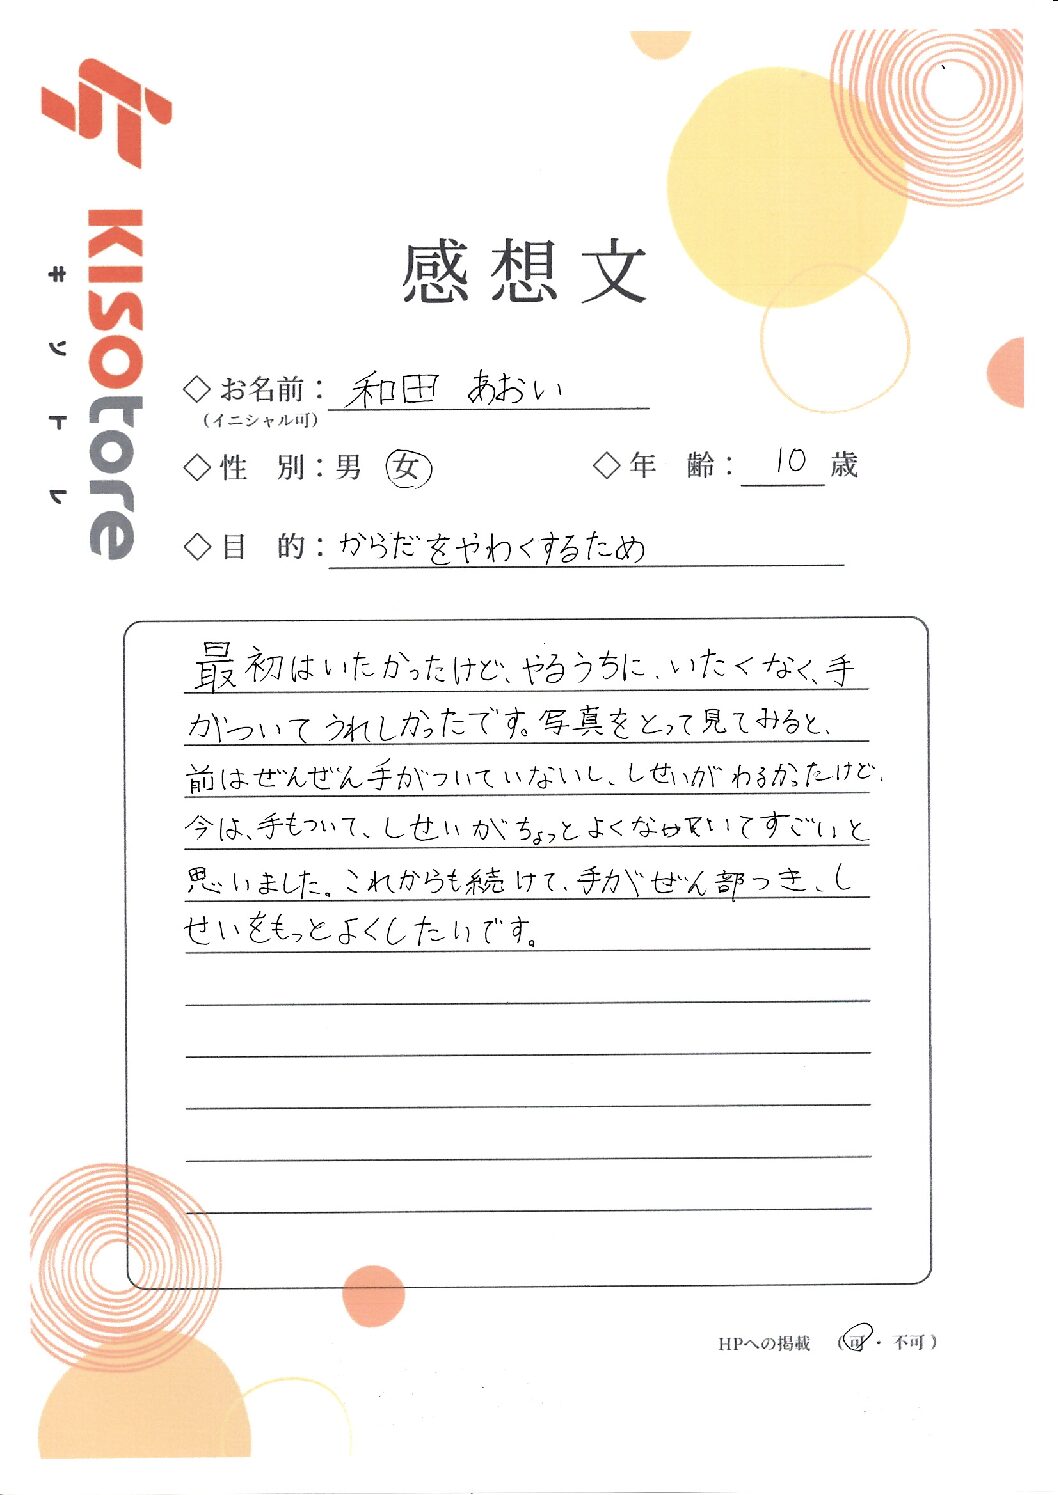 KISOtore
キソトレ
感想文
◇お名前：和田 あおい
（イニシャル可）
◇性 別：男 女 ◇年 齢： 10 歳
◇目 的：からだをやわくするため
最初はいたかったけど、やるうちに、いたくなく、手
がついてうれしかったです。写真をとって見てみると、
前はぜんぜん手がついていないし、しせいがわるかったけど、
今は、手もついて、しせいがちょっとよくなっていてすごいと
思いました。これからも続けて、手がぜん部つき、し
せいをもっとよくしたいです。
HPへの掲載 （可・不可）